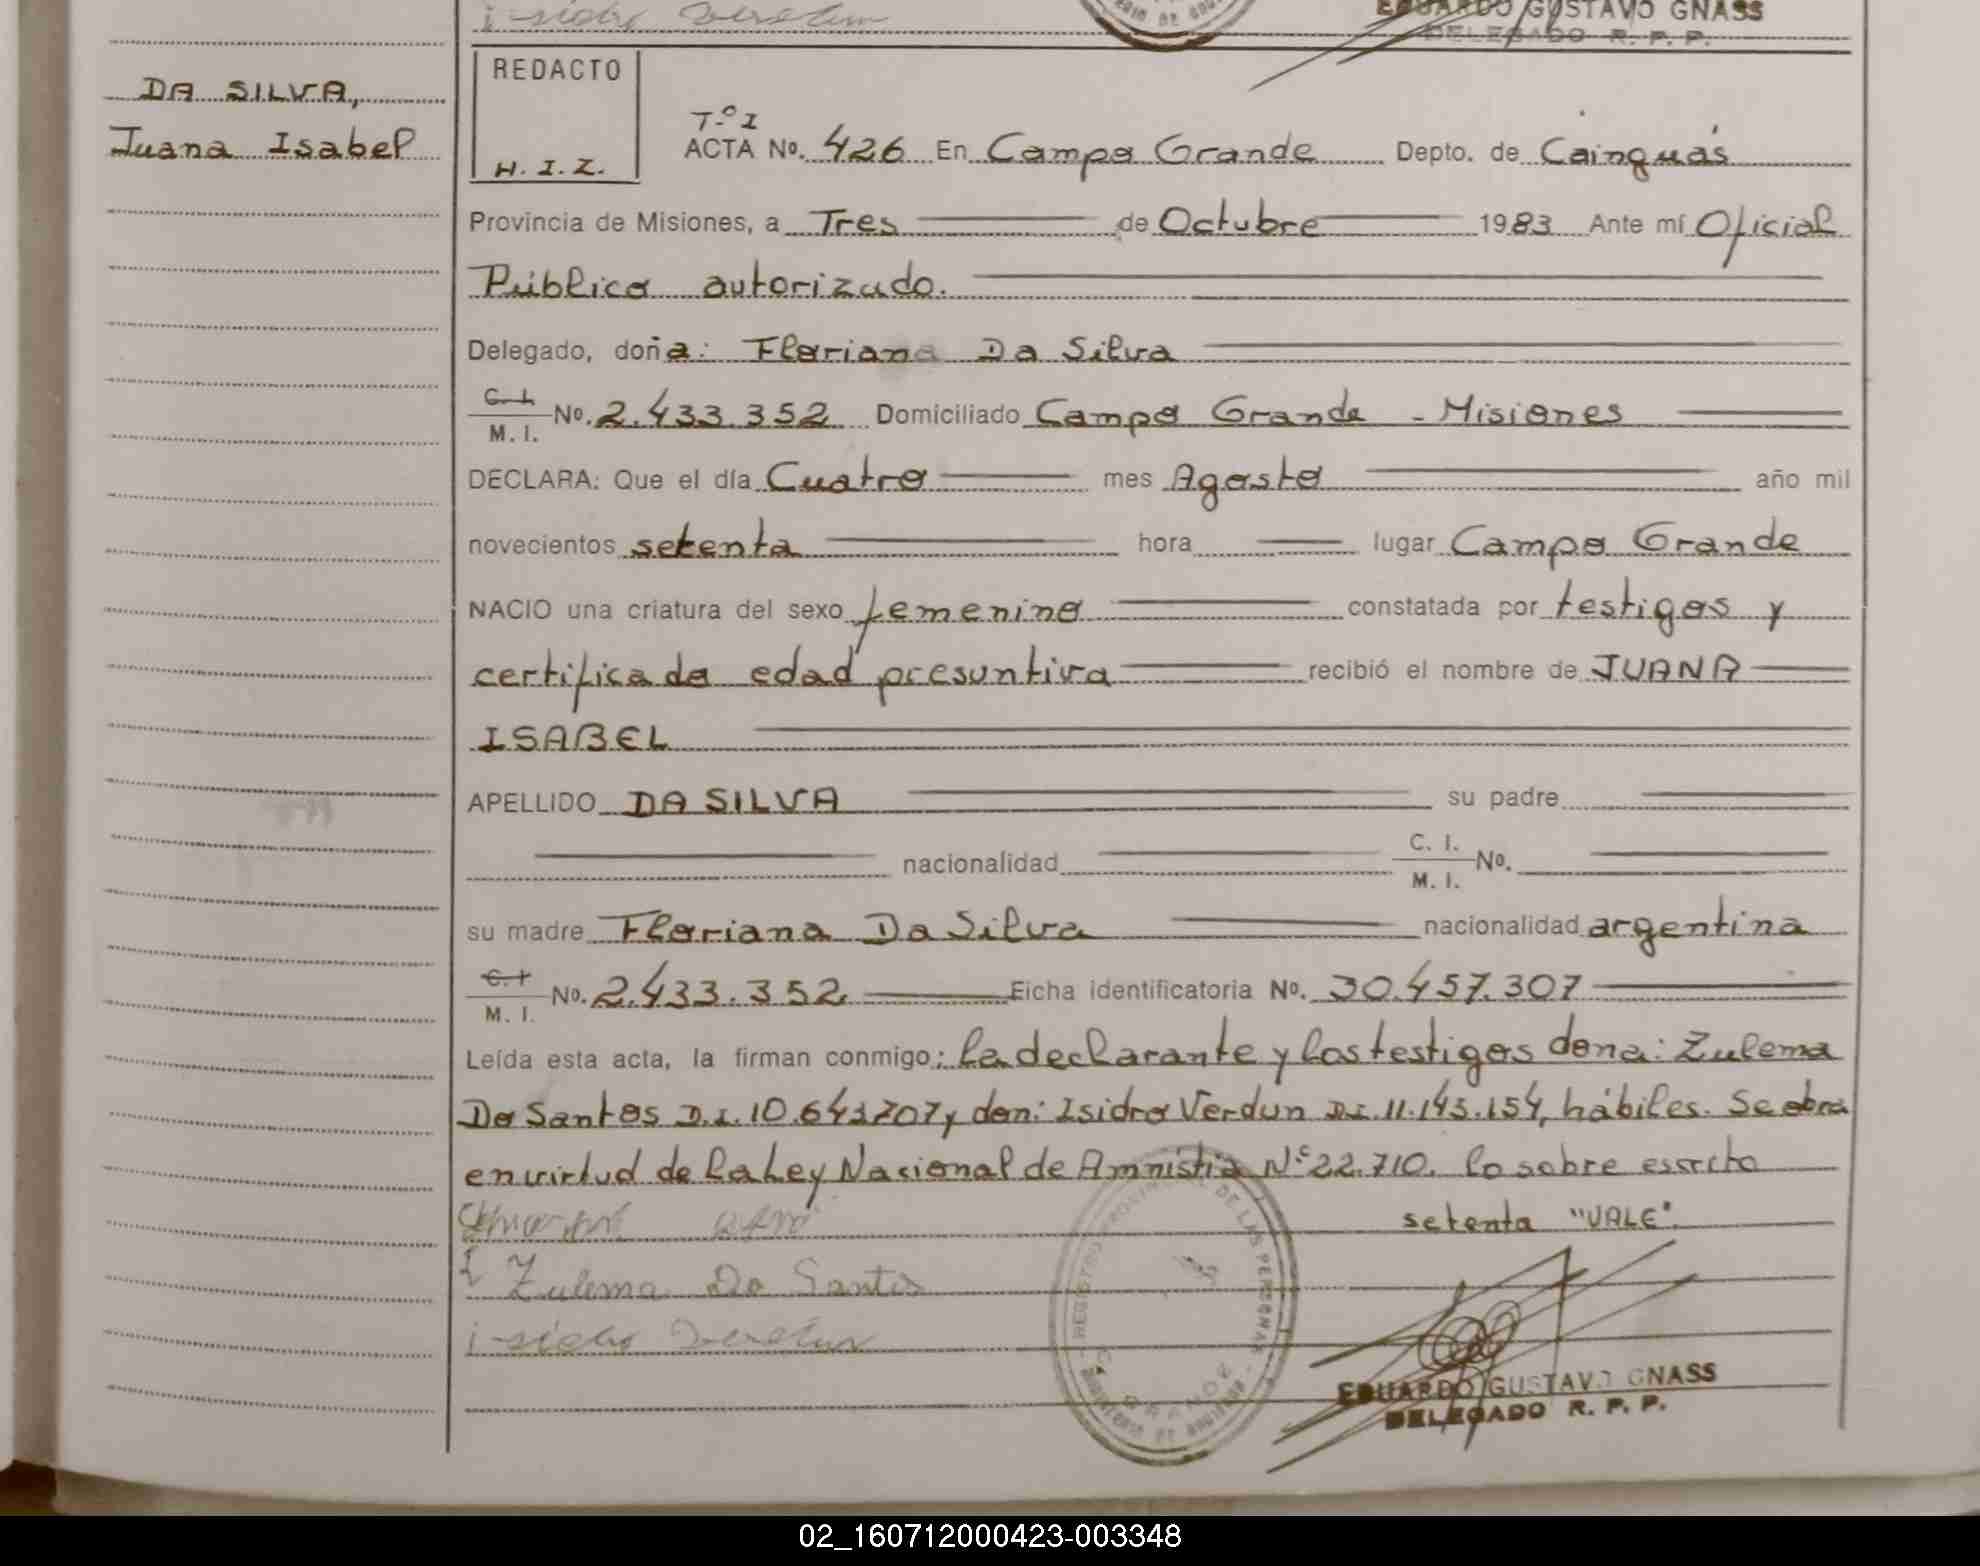 isidro Verdun
EDUARDO GUSTAVO GNASS
DELEGADO R. P. P.
DA SILVA,
Juana Isabel
REDACTO
H. I. Z.
T.º I
ACTA Nº. 426 En Campo Grande Depto. de Cainguás
Provincia de Misiones, a Tres de Octubre 1983 Ante mí Oficial
Público autorizado.
Delegado, doña: Floriana Da Silva
C. I.
M. I. Nº. 2.433.352 Domiciliado Campo Grande - Misiones
DECLARA: Que el día Cuatro mes Agosto año mil
novecientos setenta hora lugar Campo Grande
NACIO una criatura del sexo femenino constatada por testigos y
certificado edad presuntiva recibió el nombre de JUANA
ISABEL
APELLIDO DA SILVA su padre
nacionalidad C. I.
M. I. Nº.
su madre Floriana Da Silva nacionalidad argentina
C. I.
M. I. Nº. 2.433.352 Ficha identificatoria Nº. 30.457.307
Leída esta acta, la firman conmigo: la declarante y los testigos dona: Zulema
Do Santos D.I. 10.641.707 y don: Isidro Verdun D.I. 11.143.154, hábiles. Se obra
en virtud de la Ley Nacional de Amnistia Nº 22.710. lo sobre escrito
setenta "VALE".
Zulema Do Santos
isidro Verdun
REGISTRO PROVINCIAL DE LAS PERSONAS
EDUARDO GUSTAVO GNASS
DELEGADO R. P. P.
02_160712000423-003348